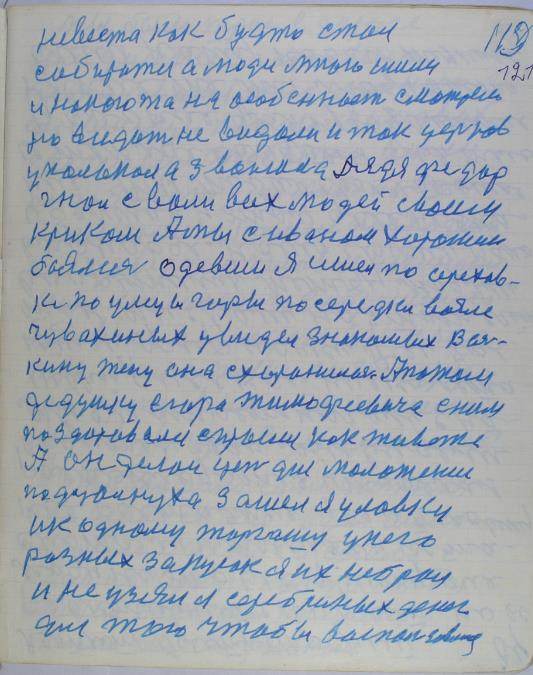 119
121
невеста как будто стои
собиратся а люди много шли
и на кого на особенност смотрел
но видат не видали и так церков
а звонила дядя федор
гнал с вали вех людей своим
криком А мы с иваном хорошии
боялися одевши я шел по орехов-
ке по улицы горы посередки возле
чувахиных увидел знакомых Вая-
кину жену она схоронилас. А потом
дедушку егора тимофеевича с ним
поздоровали спросил как животе
А он делал цеп для молотении
подсолнуха зашел я у ловку
и к одному торгашу у него
разных запусок я их не брал
и не узял я серебриных денег
для того чтобы